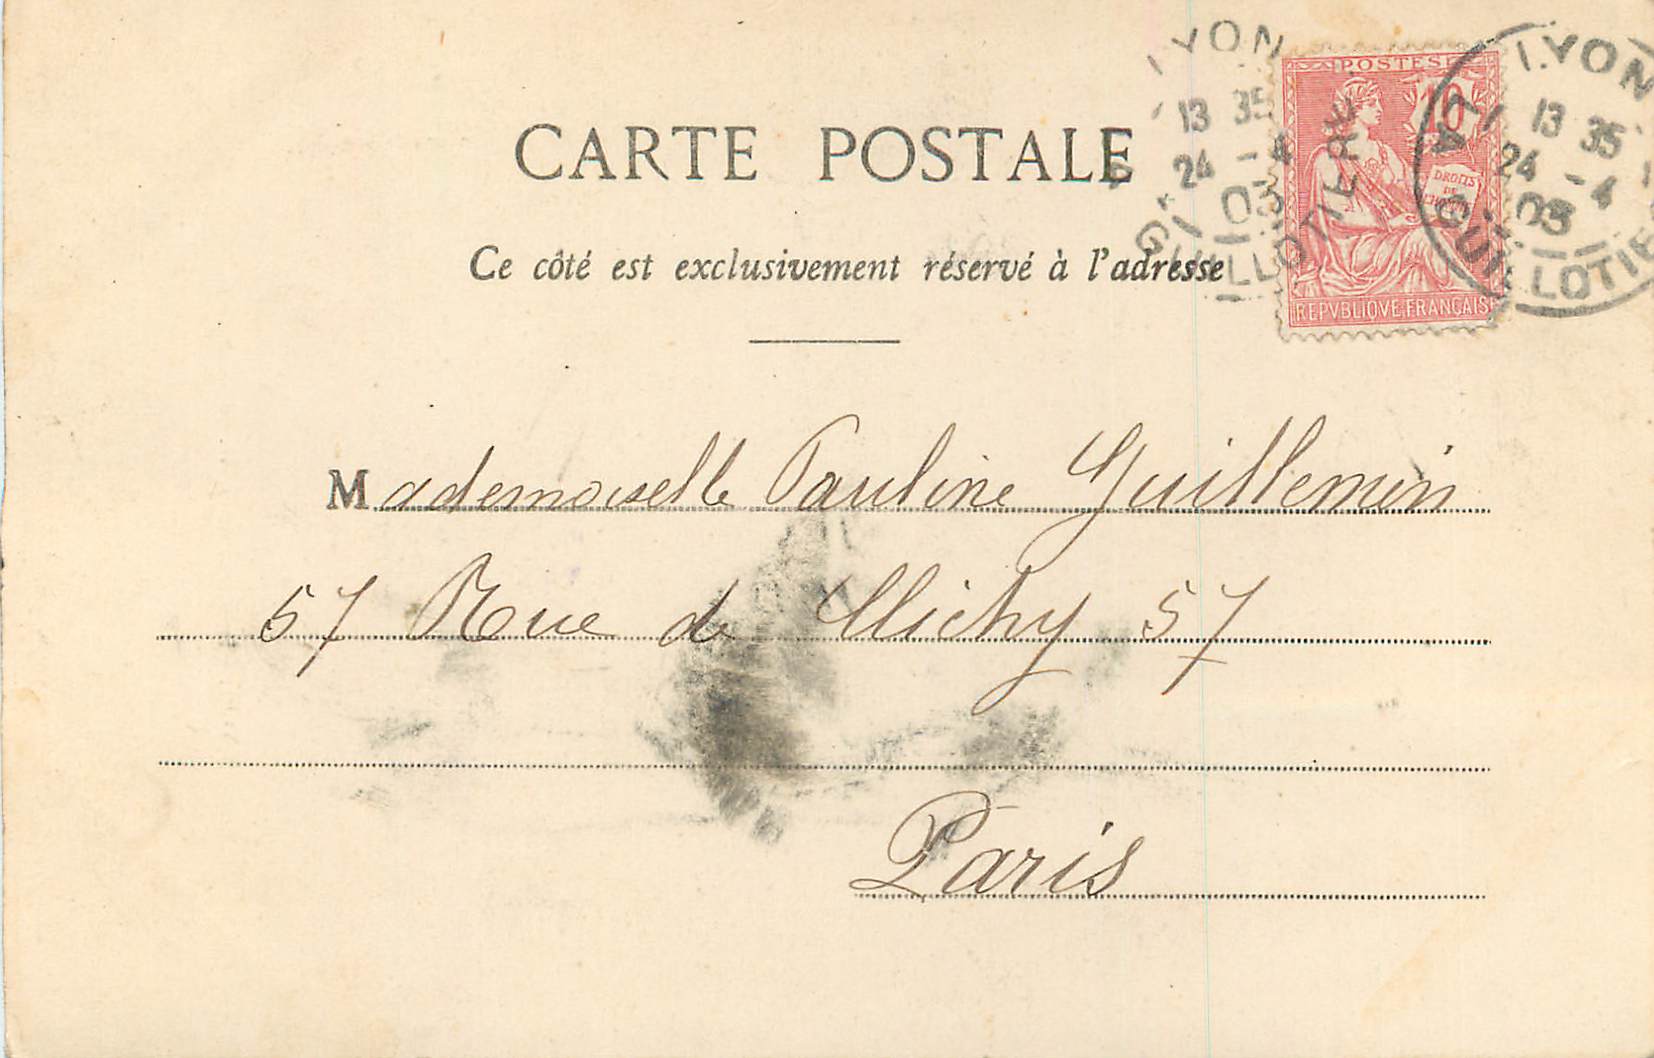 CARTE POSTALE
Ce côté est exclusivement réservé à l'adresse
POSTES
10
DROITS
DE
REPVBLIQVE FRANÇAISE
LYON
13 35
24 - 4
03
GUILLOTIÈRE
LYON
13 35
24 - 4
03
LA GUILLOTIE
Mademoiselle Pauline Guillemin
57 Rue de Clichy 57
Paris